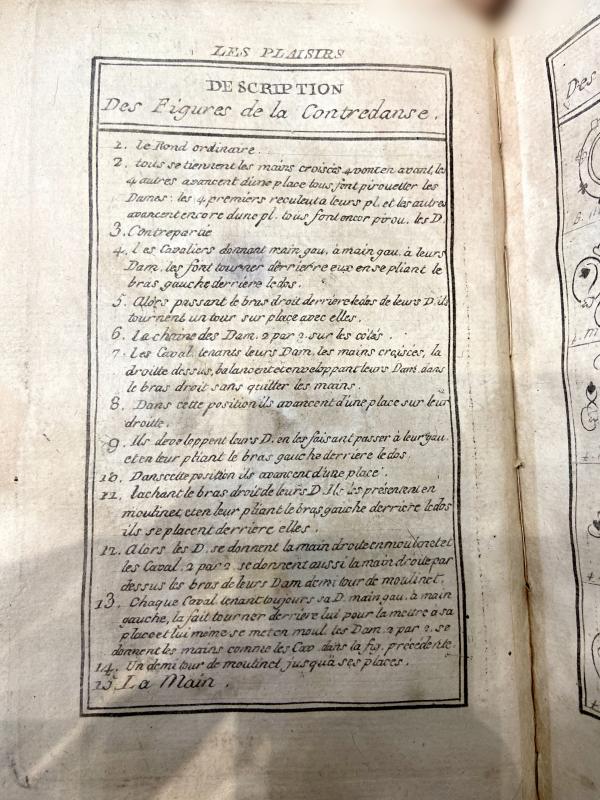 LES PLAISIRS
DESCRIPTION
Des Figures de la Contredanse.
1. le Rond ordinaire.
2. tous se tiennent les mains croisées 4 vont en avant, les
4 autres avancent d'une place tous font pirouetter les
Dames; les 4 premiers reculent a leurs pl. et les autres
avancent encore dune pl. tous font encor pirou. les D.
3. Contrepartie
4. Les Cavaliers donnant main gau. à main gau. à leurs
Dam. les font tourner derrierre eux en se pliant le
bras gauche derriere le dos.
5. Alors passant le bras droit derriere le dos de leurs D. ils
tournent un tour sur place avec elles.
6. La chaine des Dam. 2 par 2. sur les côtés.
7. Les Caval. tenants leurs Dam. les mains croisées, la
droitte dessus, balancent et enveloppant leurs Dam. dans
le bras droit sans quitter les mains.
8. Dans cette position ils avancent d'une place sur leur
droitte.
9. Ils developpent leurs D. en les faisant passer à leur gau.
et en leur pliant le bras gauche derriere le dos.
10. Dans cette position ils avancent d'une place.
11. lachant le bras droit de leurs D. Ils les présentent en
moulinet et en leur pliant le bras gauche derriere le dos
ils se placent derriere elles.
12. Alors les D. se donnent la main droite en moulinet et
les Caval. 2 par 2. se donnent aussi la main droite par
dessus les bras de leurs Dam. demi tour de moulinet.
13. Chaque Caval. tenant toujours sa D. main gau. à main
gauche, la fait tourner derriere lui pour la mettre à sa
place et lui meme se met en moul. les Dam. 2 par 2. se
donnent les mains comme les Cav. dans la fig. précédente
14. Un demi tour de moulinet jusqu'à ses places.
15. La Main.
Des